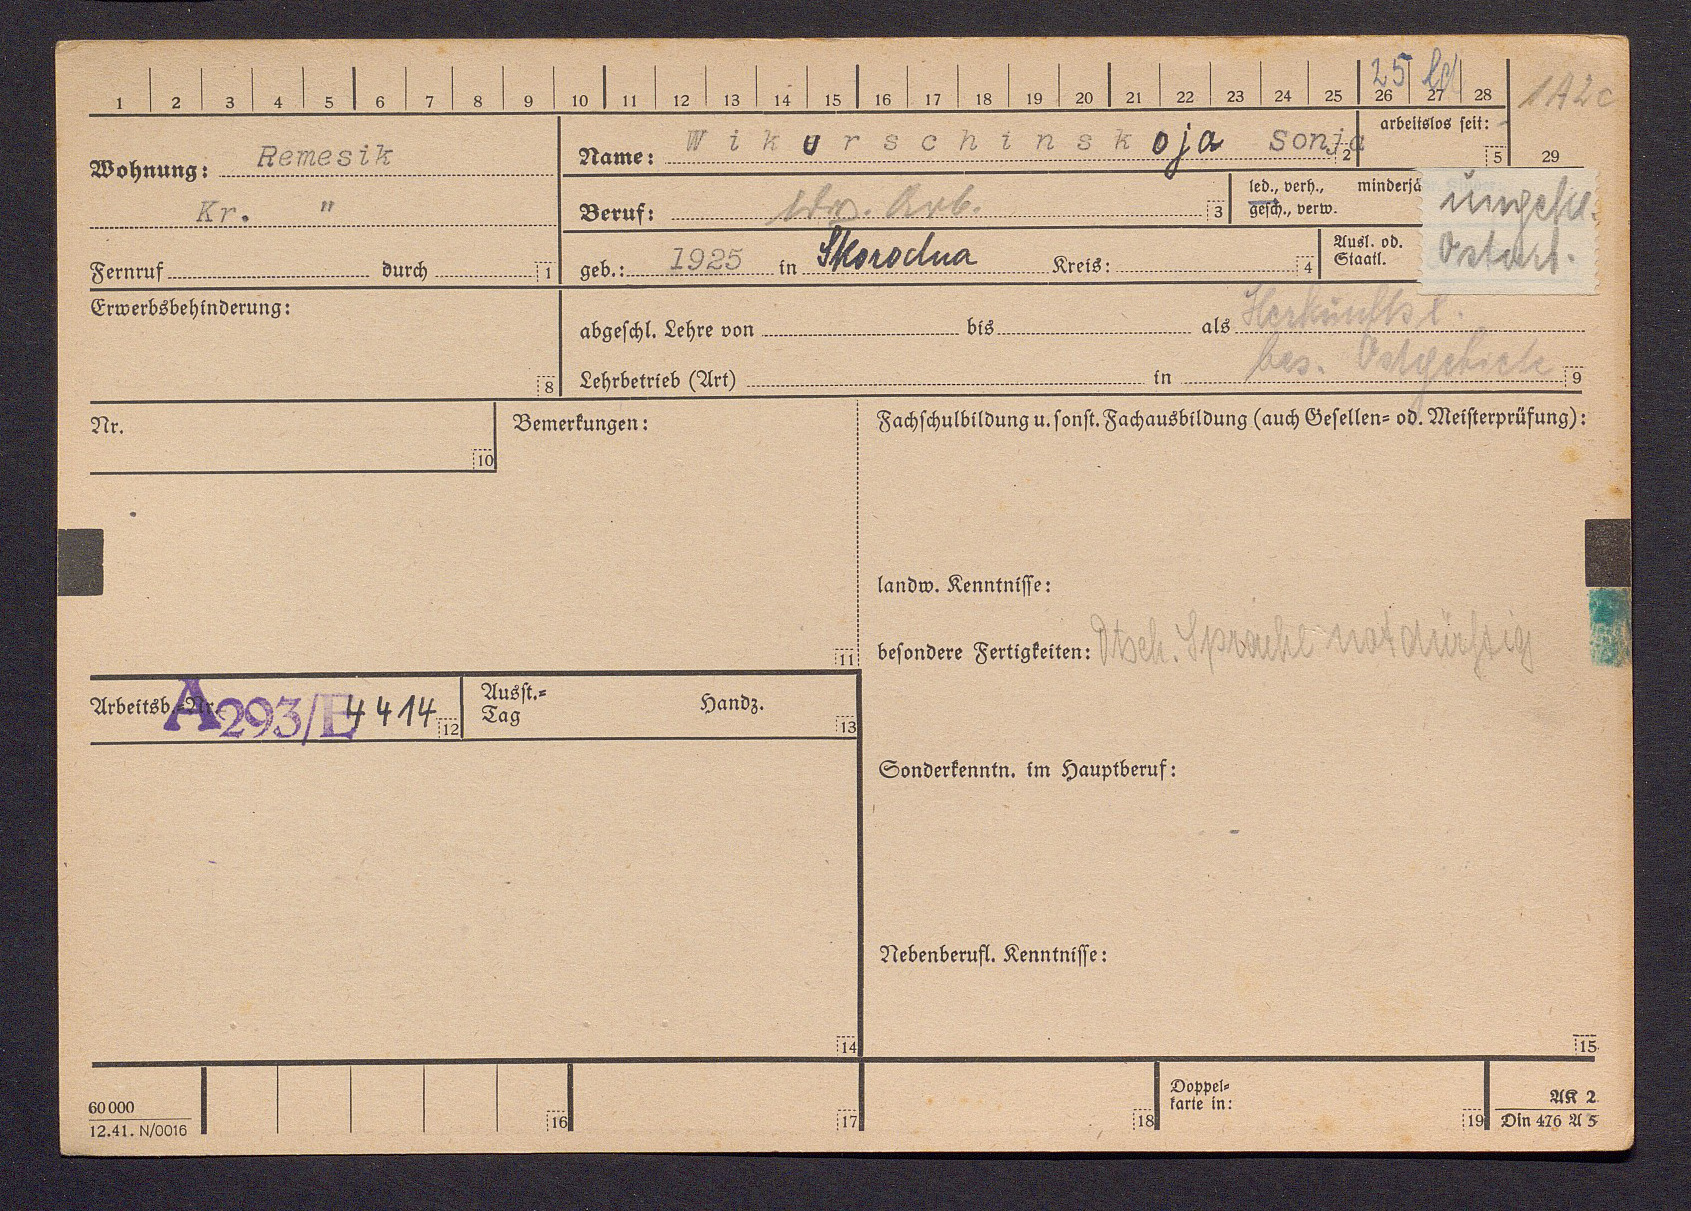 1 2 3 4 5 6 7 8 9 10 11 12 13 14 15 16 17 18 19 20 21 22 23 24 25 26 27 28
25
1A2c
29
Wohnung: Remesik
Kr. "
Fernruf durch 1
Name: Wikurschinskoja Sonja 2
arbeitslos seit: 5
Beruf: Arb. 3
led., verh., minderjä
gesch., verw.
geb.: 1925 in Skorodna Kreis: 4
Ausl. od.
Staatl.
ungekl.
Ostarb.
Erwerbsbehinderung: 8
abgeschl. Lehre von bis als
Herkunftsl.
bes. Ostgebiete
Lehrbetrieb (Art) in 9
Nr. 10
Bemerkungen: 11
Fachschulbildung u. sonst. Fachausbildung (auch Gesellen- od. Meisterprüfung):
landw. Kenntnisse:
besondere Fertigkeiten: Dtsch. Sprache notdürftig
Arbeitsb.-Nr. A293/E 4414 12
Ausst.-
Tag
Handz. 13
Sonderkenntn. im Hauptberuf:
Nebenberufl. Kenntnisse:
14
15
60 000
12.41. N/0016
16
17
18
Doppel-
karte in: 19
AK 2
Din 476 A 5